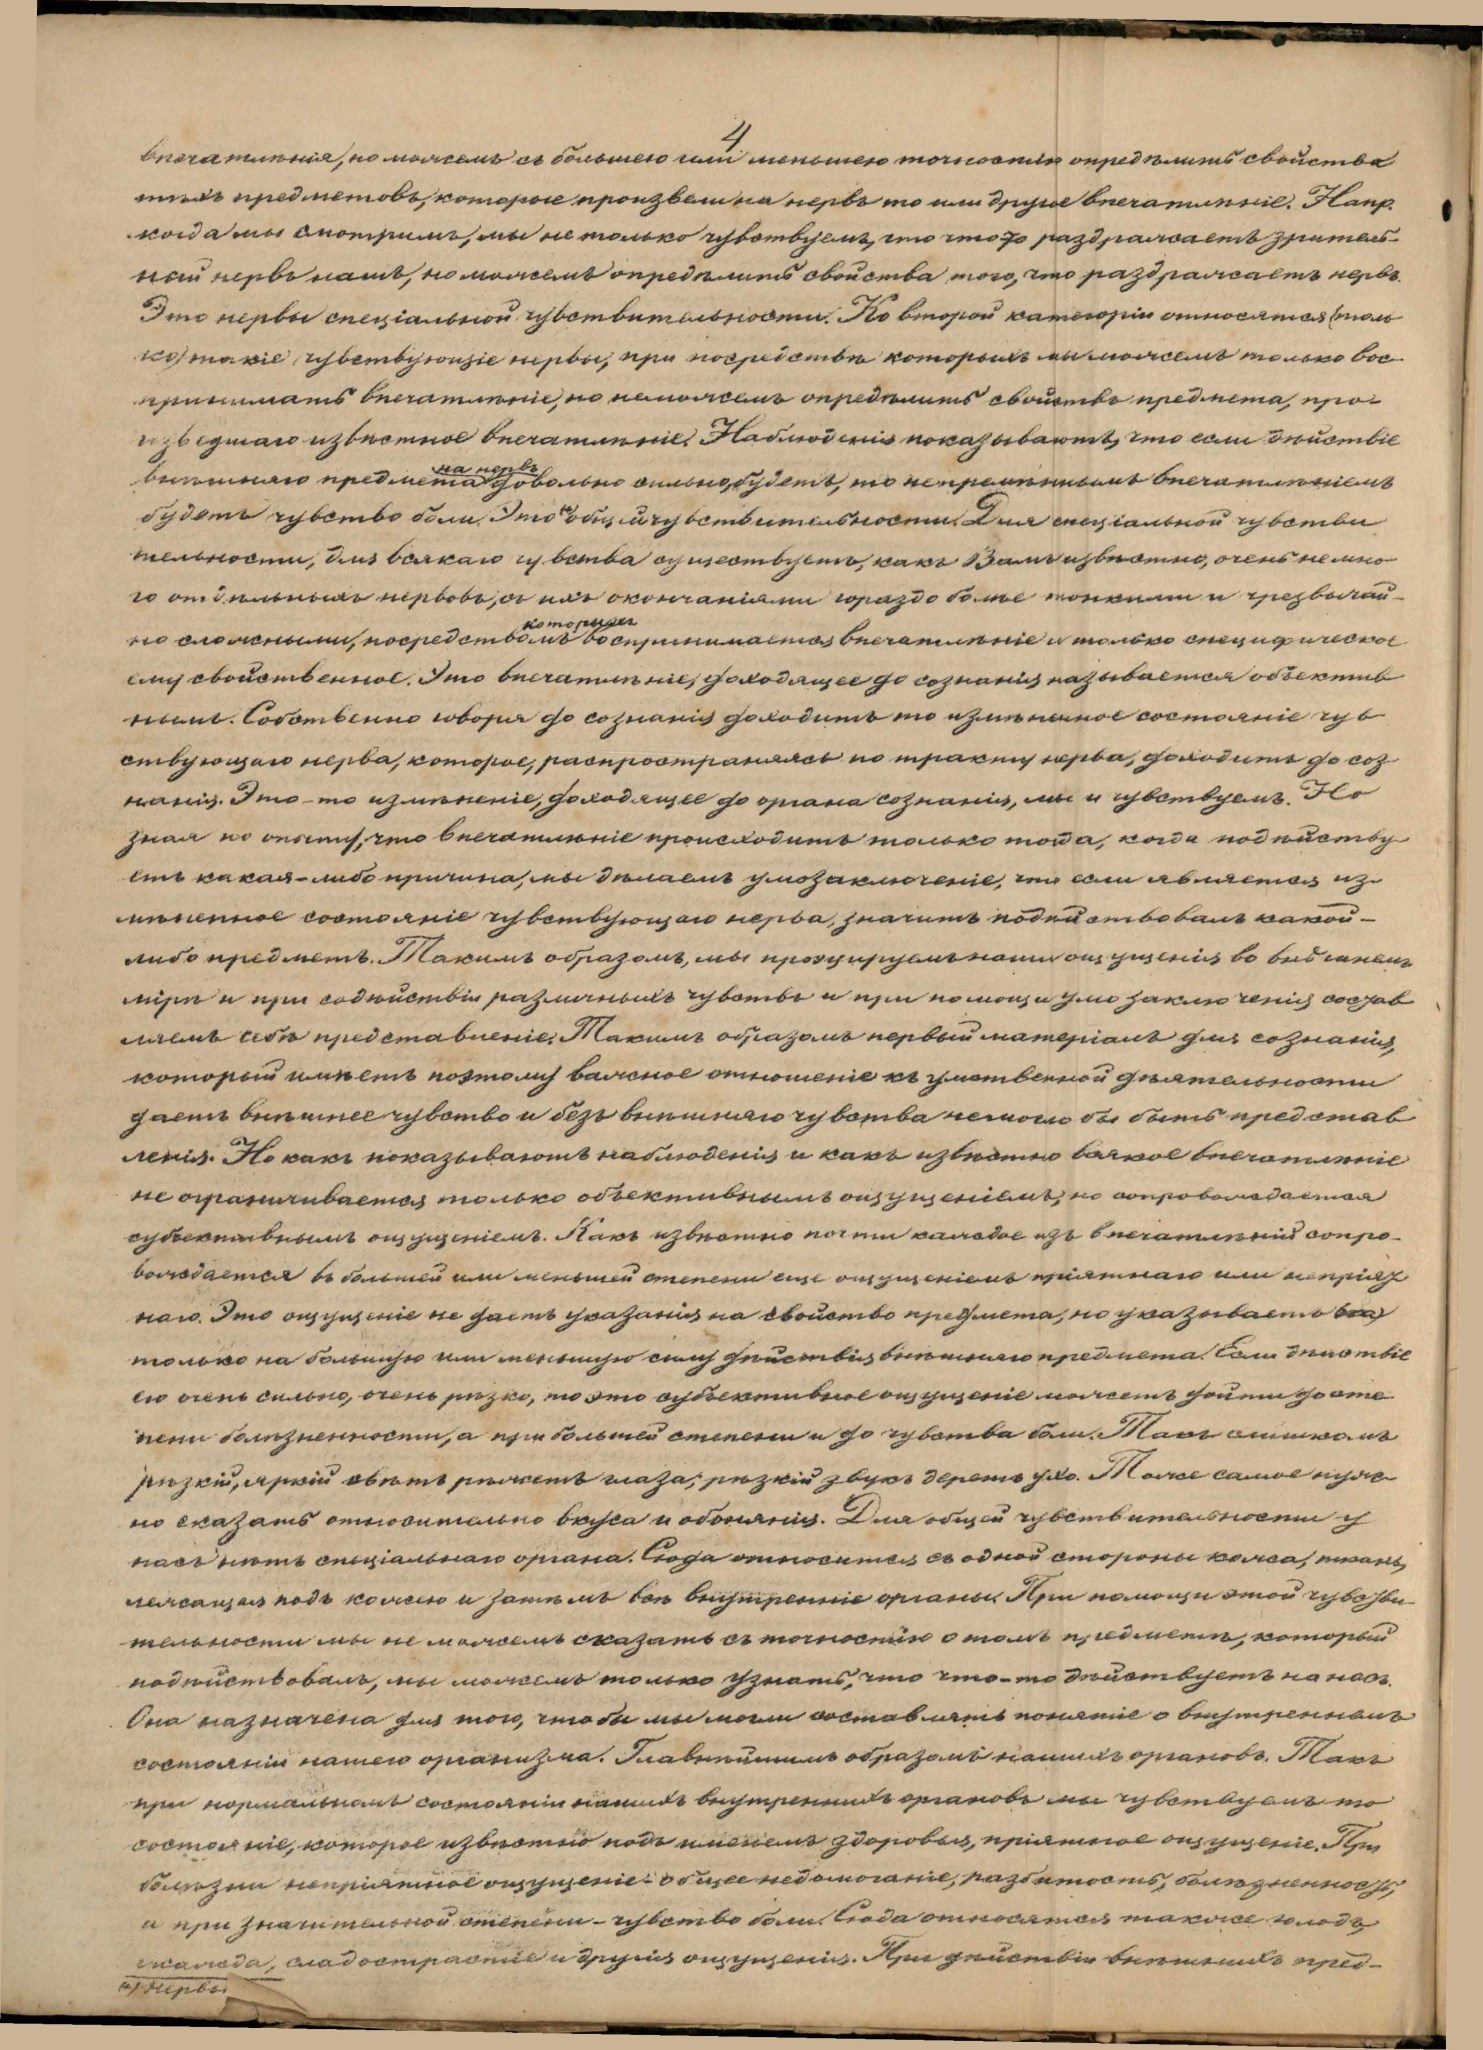 4
впечатлѣнія, но можемъ съ большею или меньшею точностію опредѣлить свойства
тѣхъ предметовъ, которые произвели на нервъ то или другое впечатлѣніе. Напр.
когда мы смотримъ, мы не только чувствуемъ, что что то раздражаетъ зритель-
ный нервъ нашъ, но можемъ опредѣлить свойства того, что раздражаетъ нервъ.
Это нервы спеціальной чувствительности. Ко второй категоріи относятся (толь
ко) такіе чувствующіе нервы, при посредствѣ которыхъ мы можемъ только вос-
принимать впечатлѣніе, но неможемъ опредѣлить свойствъ предмета, про-
изведшаго извѣстное впечатлѣніе. Наблюденія показываютъ, что если дѣйствіе
на нервъ
внѣшняго предмета довольно сильно будетъ, то непремѣннымъ впечатлѣніемъ
будетъ чувство боли. Это общей чувствительности. Для спеціальной чувстви
тельности, для всякаго чувства существуетъ, какъ Вамъ извѣстно, очень немно
го отдѣльныхъ нервовъ, съ ихъ окончаніями гораздо болѣе тонкими и чрезвычай-
которыхъ
но сложными, посредствомъ воспринимается впечатлѣніе и только специфическое
ему свойственное. Это впечатлѣніе, доходящее до сознанія называется объектив
нымъ. Собственно говоря до сознанія доходитъ то измѣненное состояніе чув
ствующаго нерва, которое, распространяясь по тракту нерва, доходитъ до соз
нанія. Это-то измѣненіе, доходящее до органа сознанія, мы и чувствуемъ. Но
зная по опыту, что впечатлѣніе происходитъ только тогда, когда подѣйству
етъ какая-либо причина, мы дѣлаемъ умозаключеніе, что если является из-
мѣненное состояніе чувствующаго нерва, значитъ подѣйствовалъ какой-
либо предметъ. Такимъ образомъ, мы проэцируемъ наши ощущенія во внѣшнемъ
мірѣ и при содѣйствіи различныхъ чувствъ и при помощи умозаключенія состав
ляемъ себѣ представленіе. Такимъ образомъ первый матеріалъ для сознанія,
который имѣетъ поэтому важное отношеніе къ умственной дѣятельности
даетъ внѣшнее чувство и безъ внѣшняго чувства немогло бы быть представ
ленія. Но какъ показываютъ наблюденія и какъ извѣстно всякое впечатлѣніе
не ограничивается только объективнымъ ощущеніемъ, но сопровождается
субъективнымъ ощущеніемъ. Какъ извѣстно почти каждое изъ впечатлѣній сопро-
вождается въ большей или меньшей степени еще ощущеніемъ пріятнаго или непріят
наго. Это ощущеніе не даетъ указанія на свойство предмета, но указываетъ
только на большую или меньшую силу дѣйствія внѣшняго предмета. Если дѣйствіе
его очень сильно, очень рѣзко, то это субъективное ощущеніе можетъ дойти до сте
пени болѣзненности, а при большей степени и до чувства боли. Такъ слишкомъ
рѣзкій, яркій свѣтъ рѣжетъ глаза, рѣзкій звукъ деретъ ухо. Тоже самое нуж
но сказать относительно вкуса и обонянія. Для общей чувствительности у
насъ нѣтъ спеціальнаго органа. Сюда относится съ одной стороны кожа, ткань,
лежащая подъ кожею и затѣмъ всѣ внутренніе органы. При помощи этой чувстви
тельности мы не можемъ сказать съ точностію о томъ предметѣ, который
подѣйствовалъ, мы можемъ только узнать, что что-то дѣйствуетъ на насъ.
Она назначена для того, чтобы мы могли составлять понятіе о внутреннемъ
состояніи нашего организма. Главнѣйшимъ образомъ нашихъ органовъ. Такъ
при нормальномъ состояніи нашихъ внутреннихъ органовъ мы чувствуемъ то
состояніе, которое извѣстно подъ именемъ здоровья, пріятное ощущеніе. При
болѣзни непріятное ощущеніе-общее недомоганіе, разбитость, болѣзненность,
а при значительной степени-чувство боли. Сюда относятся также голодъ,
жажда, сладострастіе и другія ощущенія. При дѣйствіи внѣшнихъ пред-
нервы